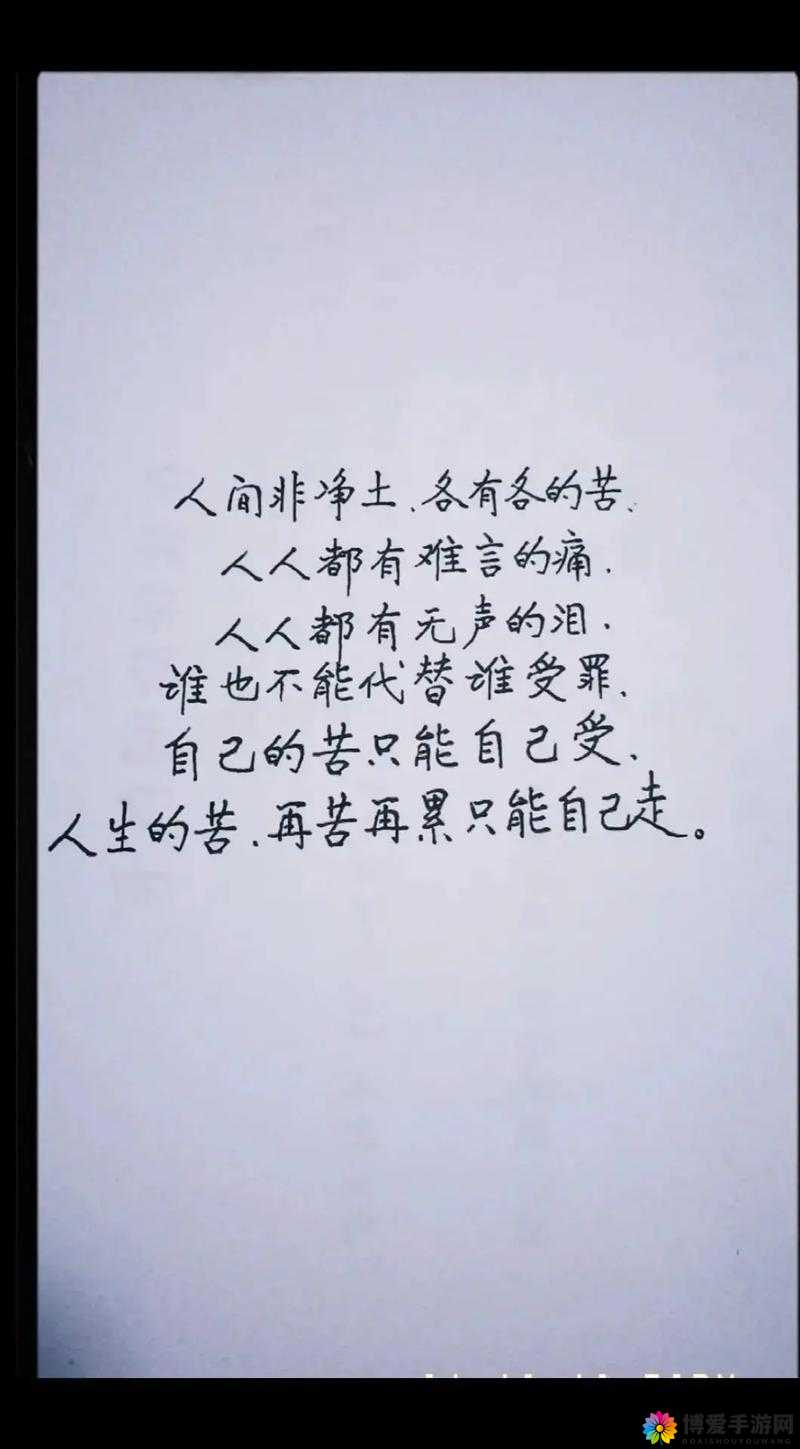 人间非净土、各有各的苦、
人人都有难言的痛.
人人都有无声的泪.
谁也不能代替谁受罪.
自己的苦只能自己受.
人生的苦.再苦再累只能自己走。
博爱手游网
BOAISHOUYOUWANG